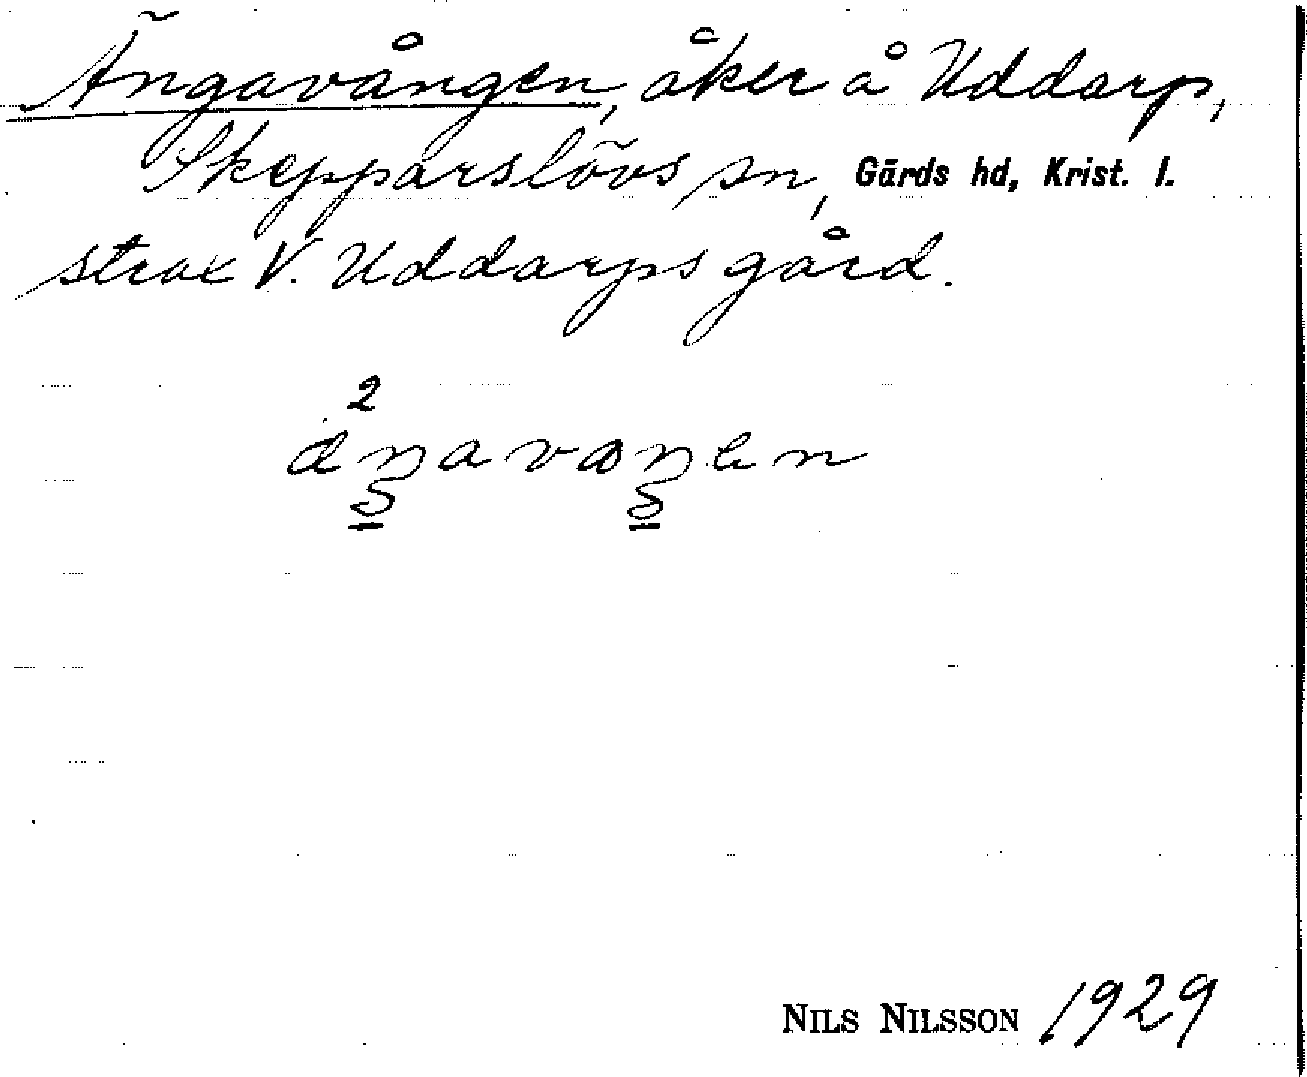 Ängavången, åker å Uddarp,
Skepparslövs sn, Gärds hd, Krist. l.
strax V. Uddarps gård.
2
NILS NILSSON 1929